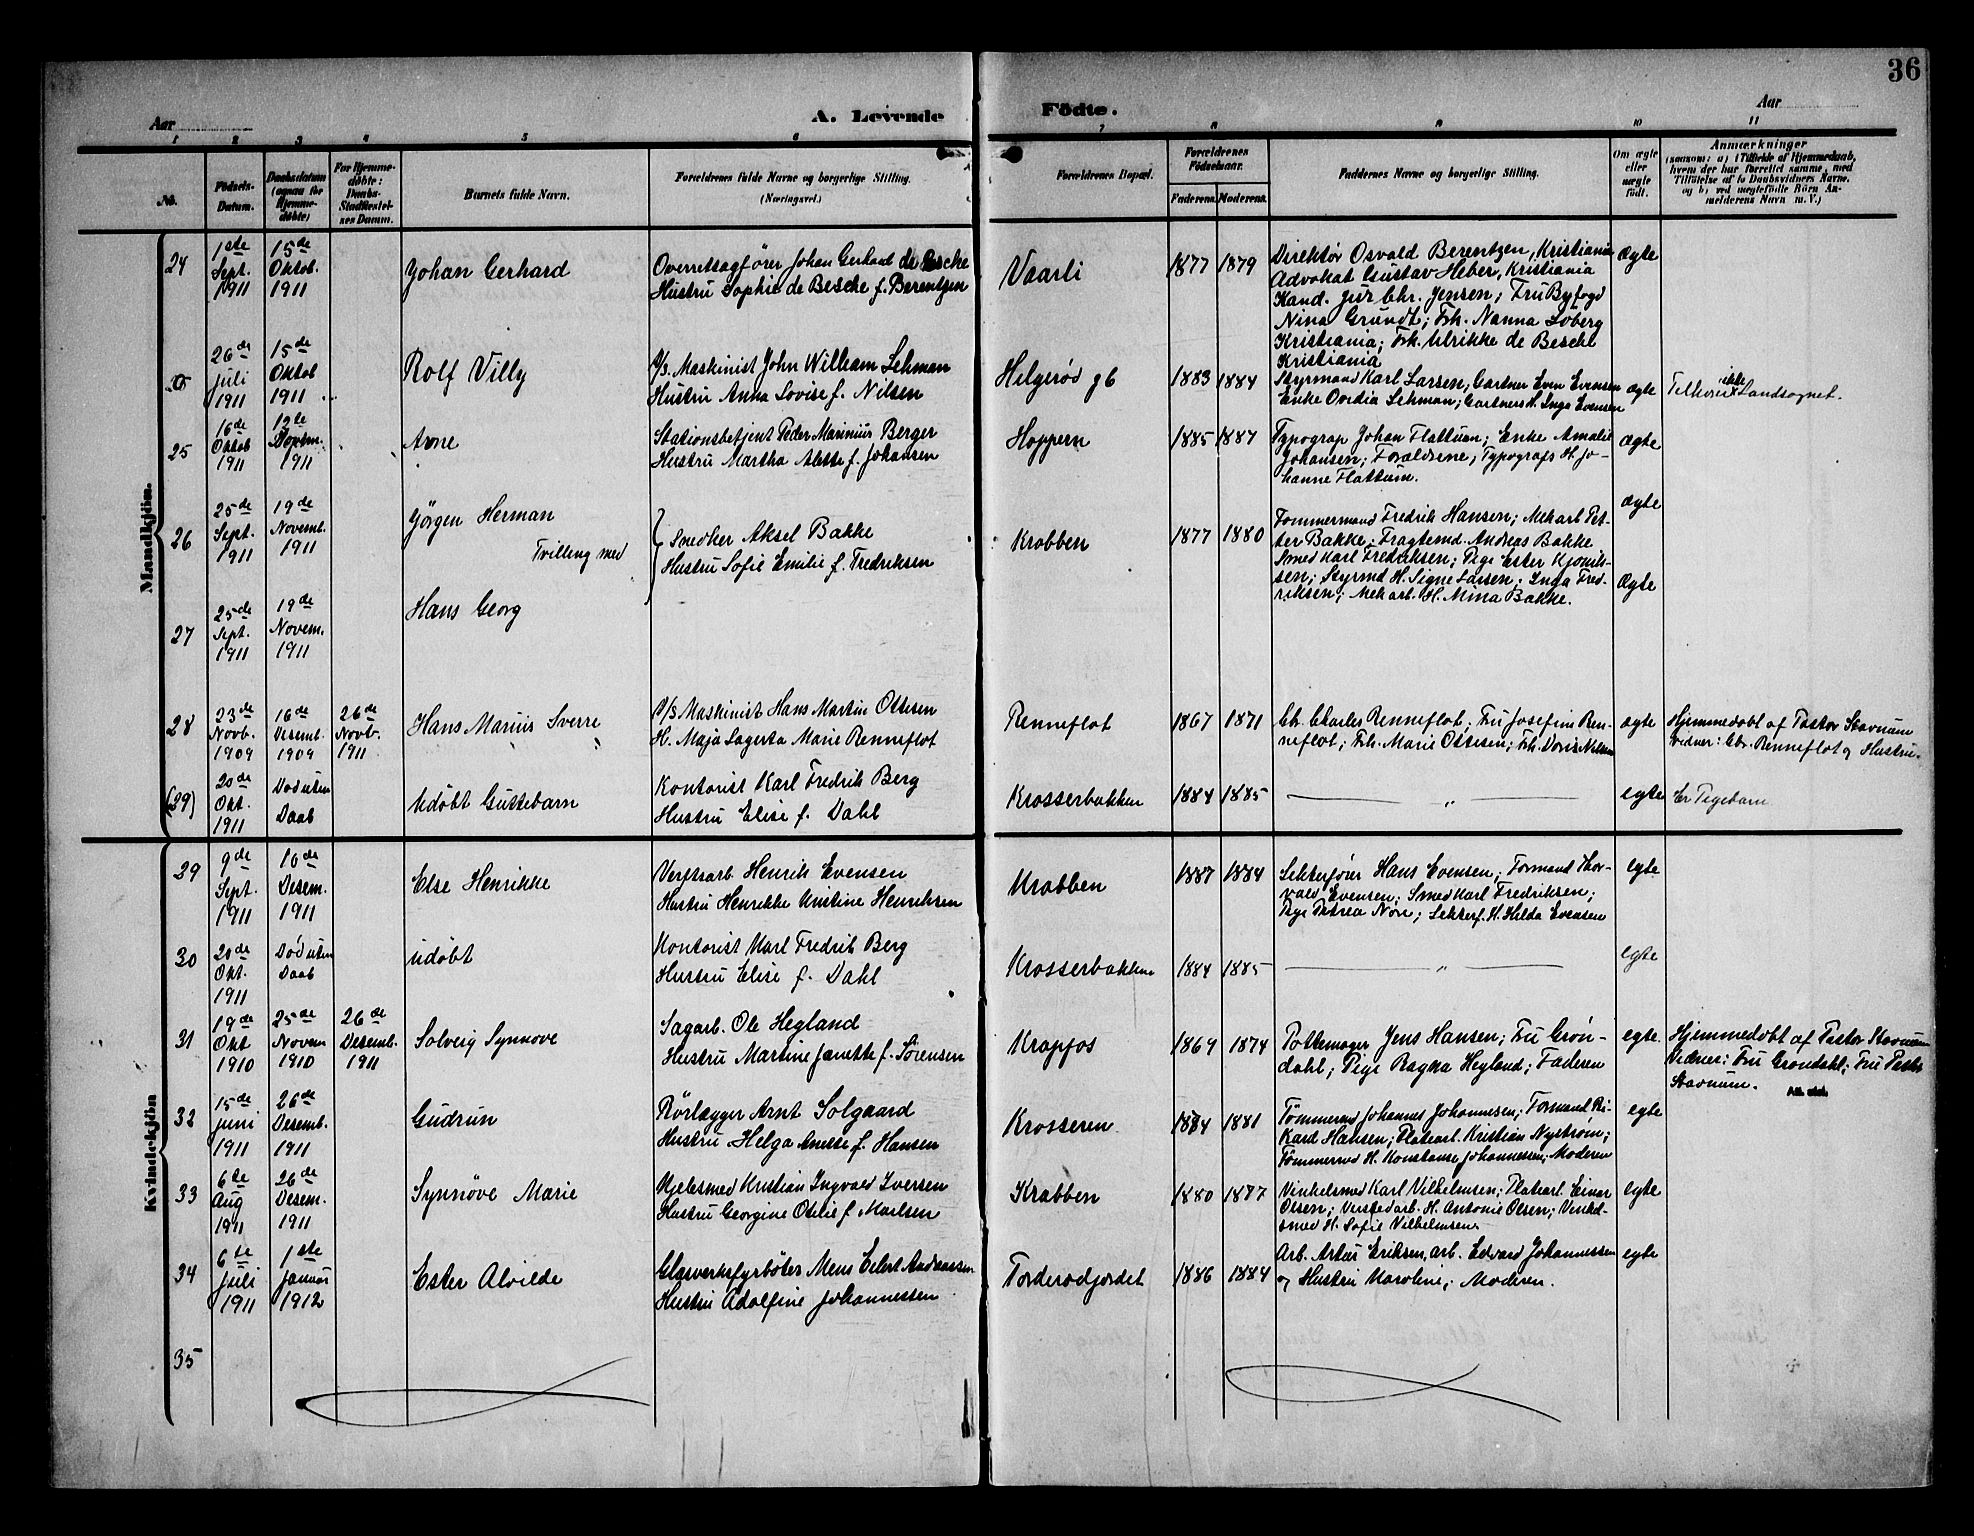 36
Aar
A. Levende
Födte.
Aar
1 2 3 4 5 6 7 8 9 10 11
No.
Födsels-
Datum.
Daabsdatum
(ogsaa for
Hjemme-
döbte)
For Hjemme-
döbte:
Daabs-
Stadfæstel-
ses Datum.
Barnets fulde Navn.
Forældrenes fulde Navne og borgerlige Stilling.
(Næringsvei.)
Forældrenes Bopæl.
Forældrenes
Födselsaar.
Faderens. Moderens.
Faddernes Navne og borgerlige Stilling.
Om ægte
eller
uægte
födt.
Anmærkninger
(saasom: a) i Tilfælde af Hjemmedaab,
hvem der har forrettet samme, med
Tilföielse af to Daabsvidners Navne,
og b) ved uægtefödte Börn An-
melderens Navn m. V.)
Mandkjön.
24
1ste
Sept.
1911
15de
Oktob.
1911
Johan Gerhard
Overretsagfører Johan Gerhard de Besche
Hustru Sophie de Besche f. Berentzen
Vaarli
1877 1879
Direktør Osvald Berentzen, Kristiania
Advokat Gustav Heber, Kristiania
Kand. jur Chr. Jensen; Fru Byfogd
Nina Grundt; Frk. Nanna Soberg
Kristiania; Frk. Ulrikke de Besche
Kristiania
Ægte
26de
juli
1911
15de
Oktob
1911
Rolf Villy
A/S. Maskinist John William Lehman
Hustru Anna Lovise f. Nilsen
Helgerød g6
1883 1884
Styrmand Karl Larsen; Gartner Even Evensen
Enke Ovedia Lehman; Gartners H. Inga Evensen
ægte
ikke
Tilhører Landsognet.
25
16de
Oktob
1911
12te
1911
Arne
Stationsbetjent Peder Marinius Berger
Hustru Martha Alette f. Johansen
Hoppern
1885 1887
Typograp Johan Flattum; Enke Amalie
Johansen; Forældrene; Typografs H. Jo-
hanne Flattum.
ægte
26
25de
Sept.
1911
19de
Novemb.
1911
Jörgen Herman
Tvilling med
Snedker Aksel Bakke
Hustru Sofie Emilie f. Fredriksen
Krabben
1877 1880
Tømmermand Fredrik Hansen; Mekarb Pet-
ter Bakke; Fragtemd. Andreas Bakke
Smed Karl Fredriksen; Pige Ester
sen; Styrmd H. Signe Larsen; Inga Fred-
riksen; Mekarb. H. Mina Bakke.
ægte
Ægte
27
25de
Sept.
1911
19de
Novem.
1911
Hans Georg
28
23de
Novb.
1909
16de
Desemb.
1909
26de
Novb.
1911
Hans Marius Sverre
A/S Maskinist Hans Martin Ottesen
H. Maja Lagerta Marie Renneflot
Renneflot
1867 1871
Ch. Charles Renneflot; Fru Josefine Ren-
neflot; Frk. Marie Ottesen; Frk. Doris Nilsen
ægte
Hjemmedøbt af Pastor Stavnum
Vidner: Chr. Renneflot og Hustru.
(29)
20de
Okt.
1911
Død uten
Daab
Udøbt Guttebarn
Kontorist Karl Fredrik Berg
Hustru Elise f. Dahl
Krosserbakken
1884 1885
— „ —
egte
Er Pigebarn
Kvindekjön
29
9de
Sept.
1911
10de
Desem.
1911
Else Henrikke
Verftsarb Henrik Evensen
Hustru Henrikke Kristine Henriksen
Krabben
1887 1884
Lekterfører Hans Evensen; Formand Thor-
vald Evensen; Smed Karl Fredriksen;
Pige Petrea Nore; Lekterf. H. Hilda Evensen
egte
30
20de
Okt.
1911
Død uten
Daab
udøbt
Kontorist Karl Fredrik Berg
Hustru Elise f. Dahl
Krosserbakken
1884 1885
— „ —
egte
31
19de
Okt
1910
25de
Novem
1910
26de
Desemb.
1911
Solveig Synnove
Sagarb. Ole Hegland
Hustru Martine Janette f. Sörensen
Krapfos
1869 1874
Pottemager Jens Hansen; Fru Grøn-
dahl; Pige Ragna Hegland; Faderen
egte.
Hjemmedøbt af Pastor Stavnum
Vidner: Fru Grøndahl; Fru Pastor
Stavnum.
Att. utst.
32
15de
juni
1911
26de
Desemb.
1911
Gudrun
Rörlægger Arnt Solgaard
Hustru Helga Anette f. Hansen
Krosseren
1884 1881
Tömmermd Johannes Johannesen; Formand Ri-
kard Hansen; Platearb. Kristian Nyström;
Tömmermd H. Konstanse Johannesen; Moderen
egte
33
6te
Aug
1911
26de
Desem.
1911
Synnöve Marie
Kjelesmed Kristian Ingvald Iversen
Hustru Georgine Otelie f. Karlsen
Krabben
1880 1877
Vinkelsmed Karl Vilhelmsen; Platearb. Einar
Olsen; Verstedarb. H. Antonie Olsen; Vinkel-
smed H. Sofie Vilhelmsen.
egte
34
6te
juli
1911
1ste
januar
1912
Ester Alvilde
Glasverksfyrbøter Mens Eilert Andreassen
Hustru Adolfine Johannessen
Torderødjordet
1886 1884
Arb. Artur Eriksen, arb. Edvard Johannessen
og Hustru Karoline; Moderen.
egte
35